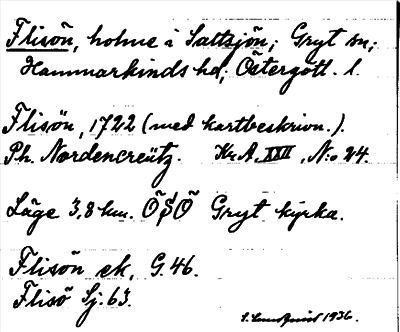 Flisön, holme i Saltsjön; Gryt sn;
Hammarkinds hd; Östergötl. l.
Flisön, 1722 (med kartbeskrivn.).
Ph. Nordencreütz. Kr. A. XXII, N:o 24.
Läge 3,8 km. OSO Gryt kyrka.
Flisön ek, G. 46.
Flisö Sj. 63.
S. Lundquist 1936.